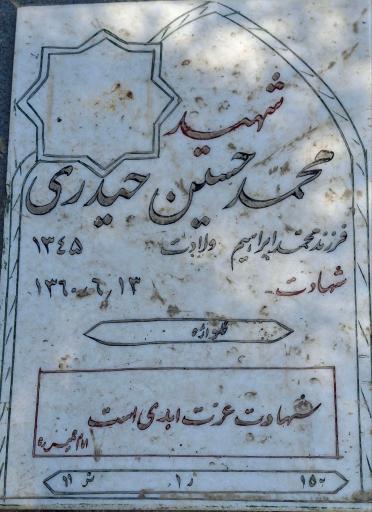 شهید
محمد حسین حیدری
فرزند محمد ابراهیم ولادت ۱۳۴۵
شهادت ۱۳۶۰٫۶٫۱۳
شهادت عزت ابدی است
امام خمینی ره